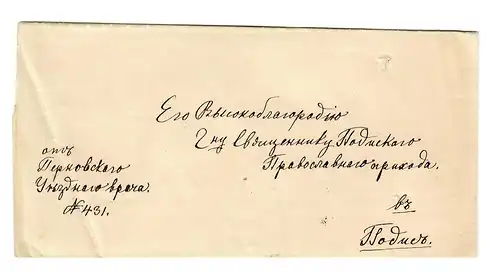 Его Высокоблагородію
Гну Священнику Подисскаго
Православнаго прихода.
въ
Подисъ.
отъ
Перновскаго
Уѣзднаго врача.
№ 431.